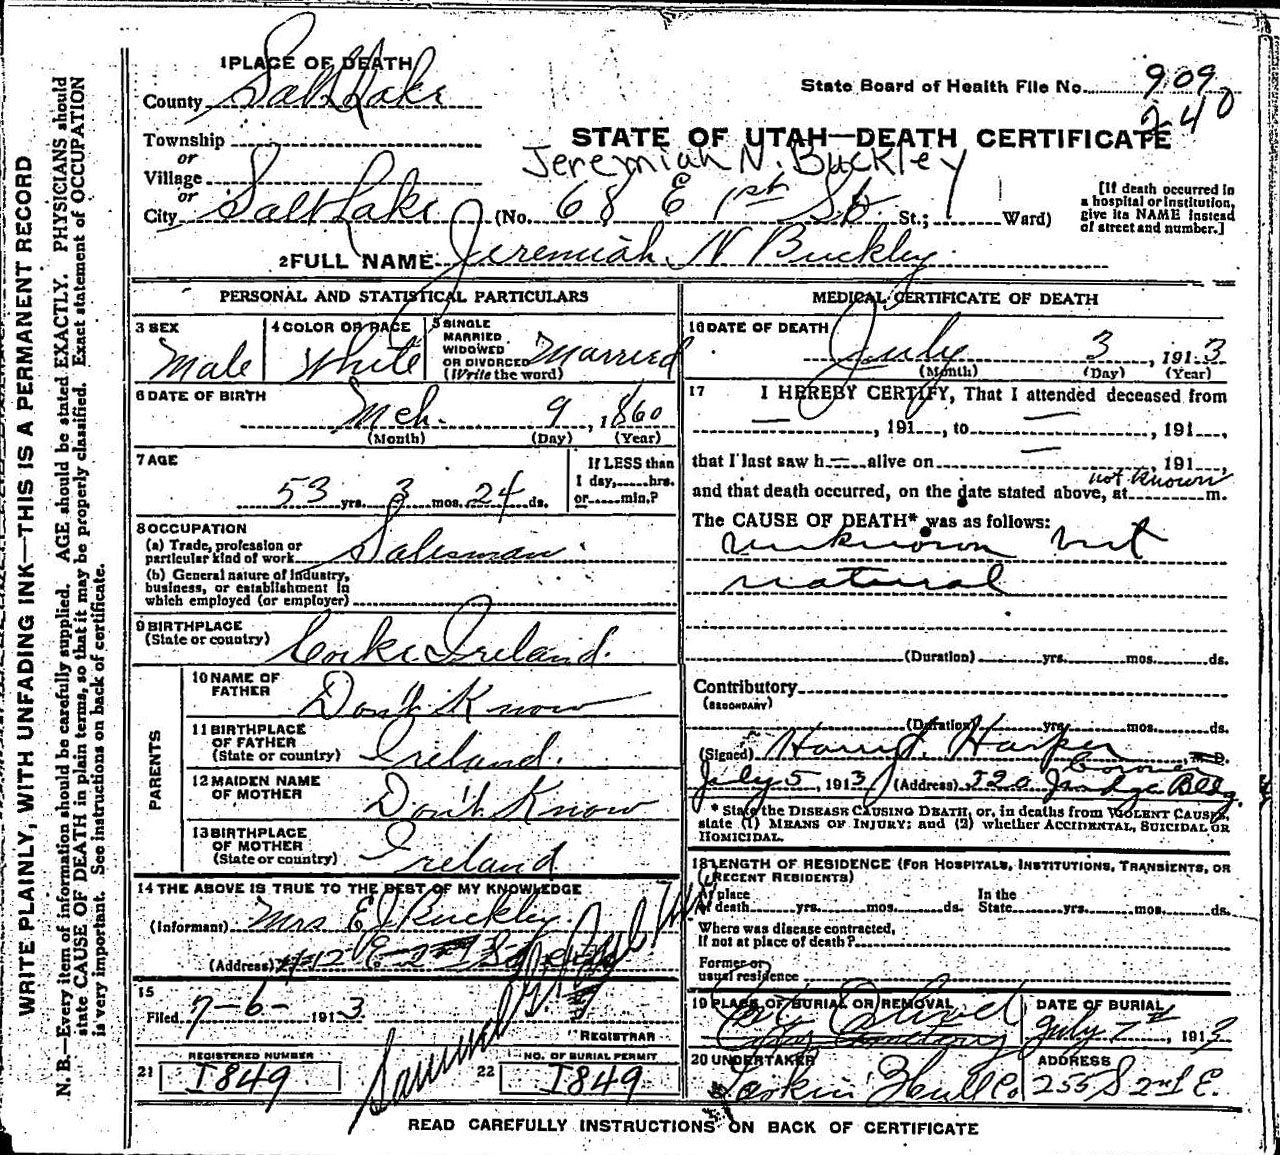 WRITE PLAINLY, WITH UNFADING INK—THIS IS A PERMANENT RECORD
N. B.—Every item of information should be carefully supplied. AGE should be stated EXACTLY. PHYSICIANS should
state CAUSE OF DEATH in plain terms, so that it may be properly classified. Exact statement of OCCUPATION
is very important. See instructions on back of certificate.
1 PLACE OF DEATH
County Salt Lake
Township
or
Village
or
City Salt Lake (No. 68 E 1st So. St.; 1 Ward)
State Board of Health File No. 909
240
STATE OF UTAH—DEATH CERTIFICATE
Jeremiah N. Buckley
[If death occurred in
a hospital or institution,
give its NAME instead
of street and number.]
2 FULL NAME Jeremiah N Buckley
PERSONAL AND STATISTICAL PARTICULARS
3 SEX
Male
4 COLOR OR RACE
White
5 SINGLE
MARRIED
WIDOWED
OR DIVORCED
(Write the word)
Married
6 DATE OF BIRTH
Mch. 9, 1860
(Month) (Day) (Year)
7 AGE
53 yrs. 3 mos. 24 ds.
If LESS than
1 day, hrs.
or min.?
8 OCCUPATION
(a) Trade, profession or
particular kind of work Salesman
(b) General nature of industry,
business, or establishment in
which employed (or employer)
9 BIRTHPLACE
(State or country) Corke Ireland.
PARENTS
10 NAME OF
FATHER
Don't Know
11 BIRTHPLACE
OF FATHER
(State or country) Ireland.
12 MAIDEN NAME
OF MOTHER
Don't Know
13 BIRTHPLACE
OF MOTHER
(State or country) Ireland
14 THE ABOVE IS TRUE TO THE BEST OF MY KNOWLEDGE
(Informant) Mrs E J Buckley.
(Address)
15
Filed 7-6- 1913
REGISTRAR
REGISTERED NUMBER
21 I849
NO. OF BURIAL PERMIT
22 I849
MEDICAL CERTIFICATE OF DEATH
16 DATE OF DEATH
July 3, 1913
(Month) (Day) (Year)
17 I HEREBY CERTIFY, That I attended deceased from
— , 191 , to — , 191 ,
that I last saw h — alive on — , 191 ,
and that death occurred, on the date stated above, at not known m.
The CAUSE OF DEATH* was as follows:
unknown but
natural
(Duration) yrs. mos. ds.
Contributory
(SECONDARY)
(Duration) yrs. mos. ds.
(Signed) Harry J. Harper M. D.
Coroner
July 5, 1913 (Address) 320 Judge Bldg.
* State the DISEASE CAUSING DEATH, or, in deaths from VIOLENT CAUSES,
state (1) MEANS OF INJURY; and (2) whether ACCIDENTAL, SUICIDAL OR
HOMICIDAL.
18 LENGTH OF RESIDENCE (FOR HOSPITALS, INSTITUTIONS, TRANSIENTS, OR
RECENT RESIDENTS)
At place
of death yrs. mos. ds.
In the
State yrs. mos. ds.
Where was disease contracted,
If not at place of death?
Former or
usual residence
19 PLACE OF BURIAL OR REMOVAL
Mt. Olivet
DATE OF BURIAL
July 7th, 1913
20 UNDERTAKER
Larkin Hull Co.
ADDRESS
255 S 2nd E.
READ CAREFULLY INSTRUCTIONS ON BACK OF CERTIFICATE